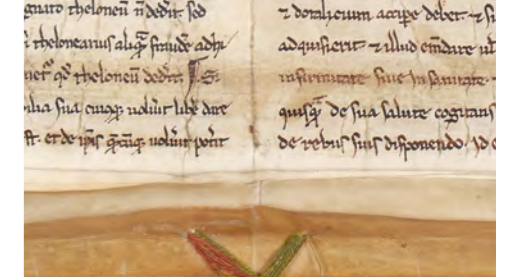 theloneũ ñ dedit̃. sed
thelonearius aliq̃ fraude adhi
q̃ theloneũ dedit̃. Si
sua cuicq; uoluit̃ libe dare
et de ip̃is q̃cũq; uoluit̃ potit̃
⁊ dotalicium accipe debet ⁊ si
adquisierit ⁊ illud em̃dare ul̃
infirmitate siue in sanitate
quisq̃ de sua salute cogitans
de rebus suis disponendo. Id e